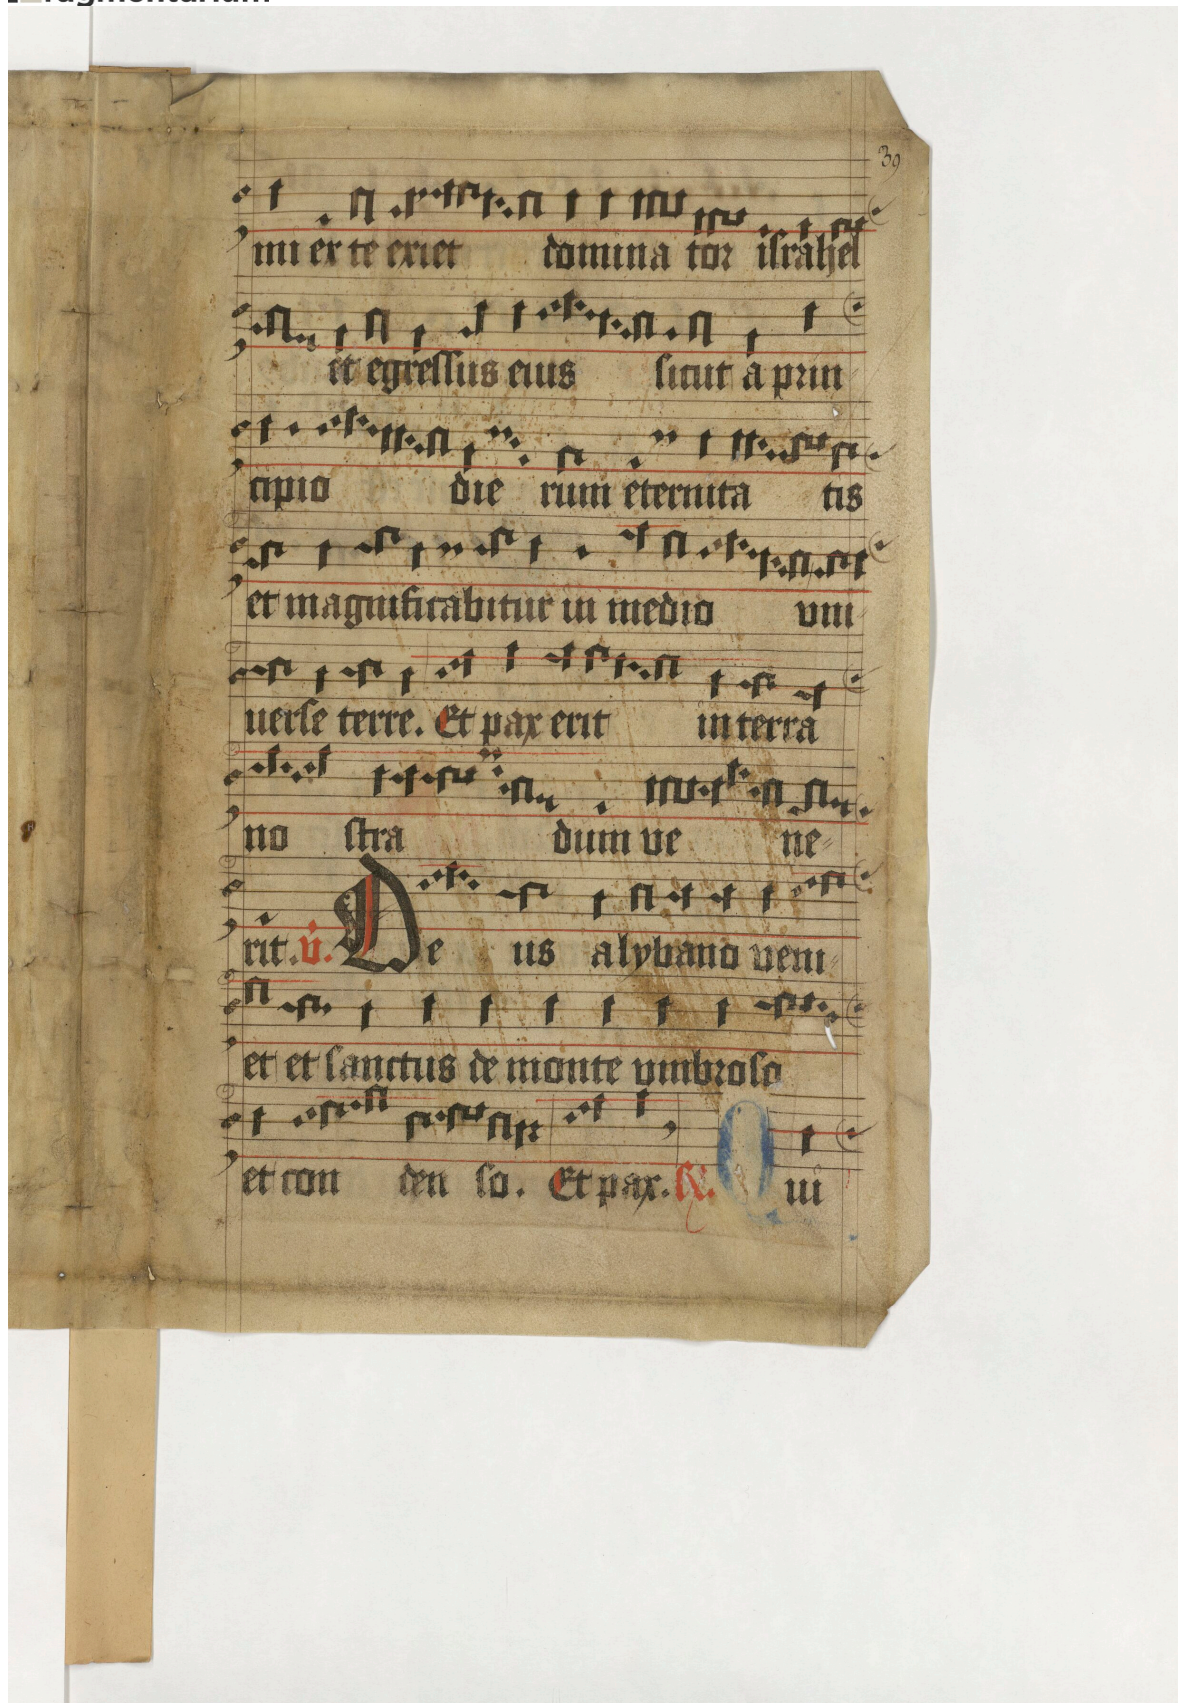 39
mi ex te exiet domina tor israhel
et egressus eius sicut a prin
cipio die rum eternita tis
et magnificabitur in medio vni
uerse terre. Et pax erit in terra
no stra dum ve ne
rit. v. De us a lybano veni
et et sanctus de monte vmbroso
et con den so. Et pax. R. Qui